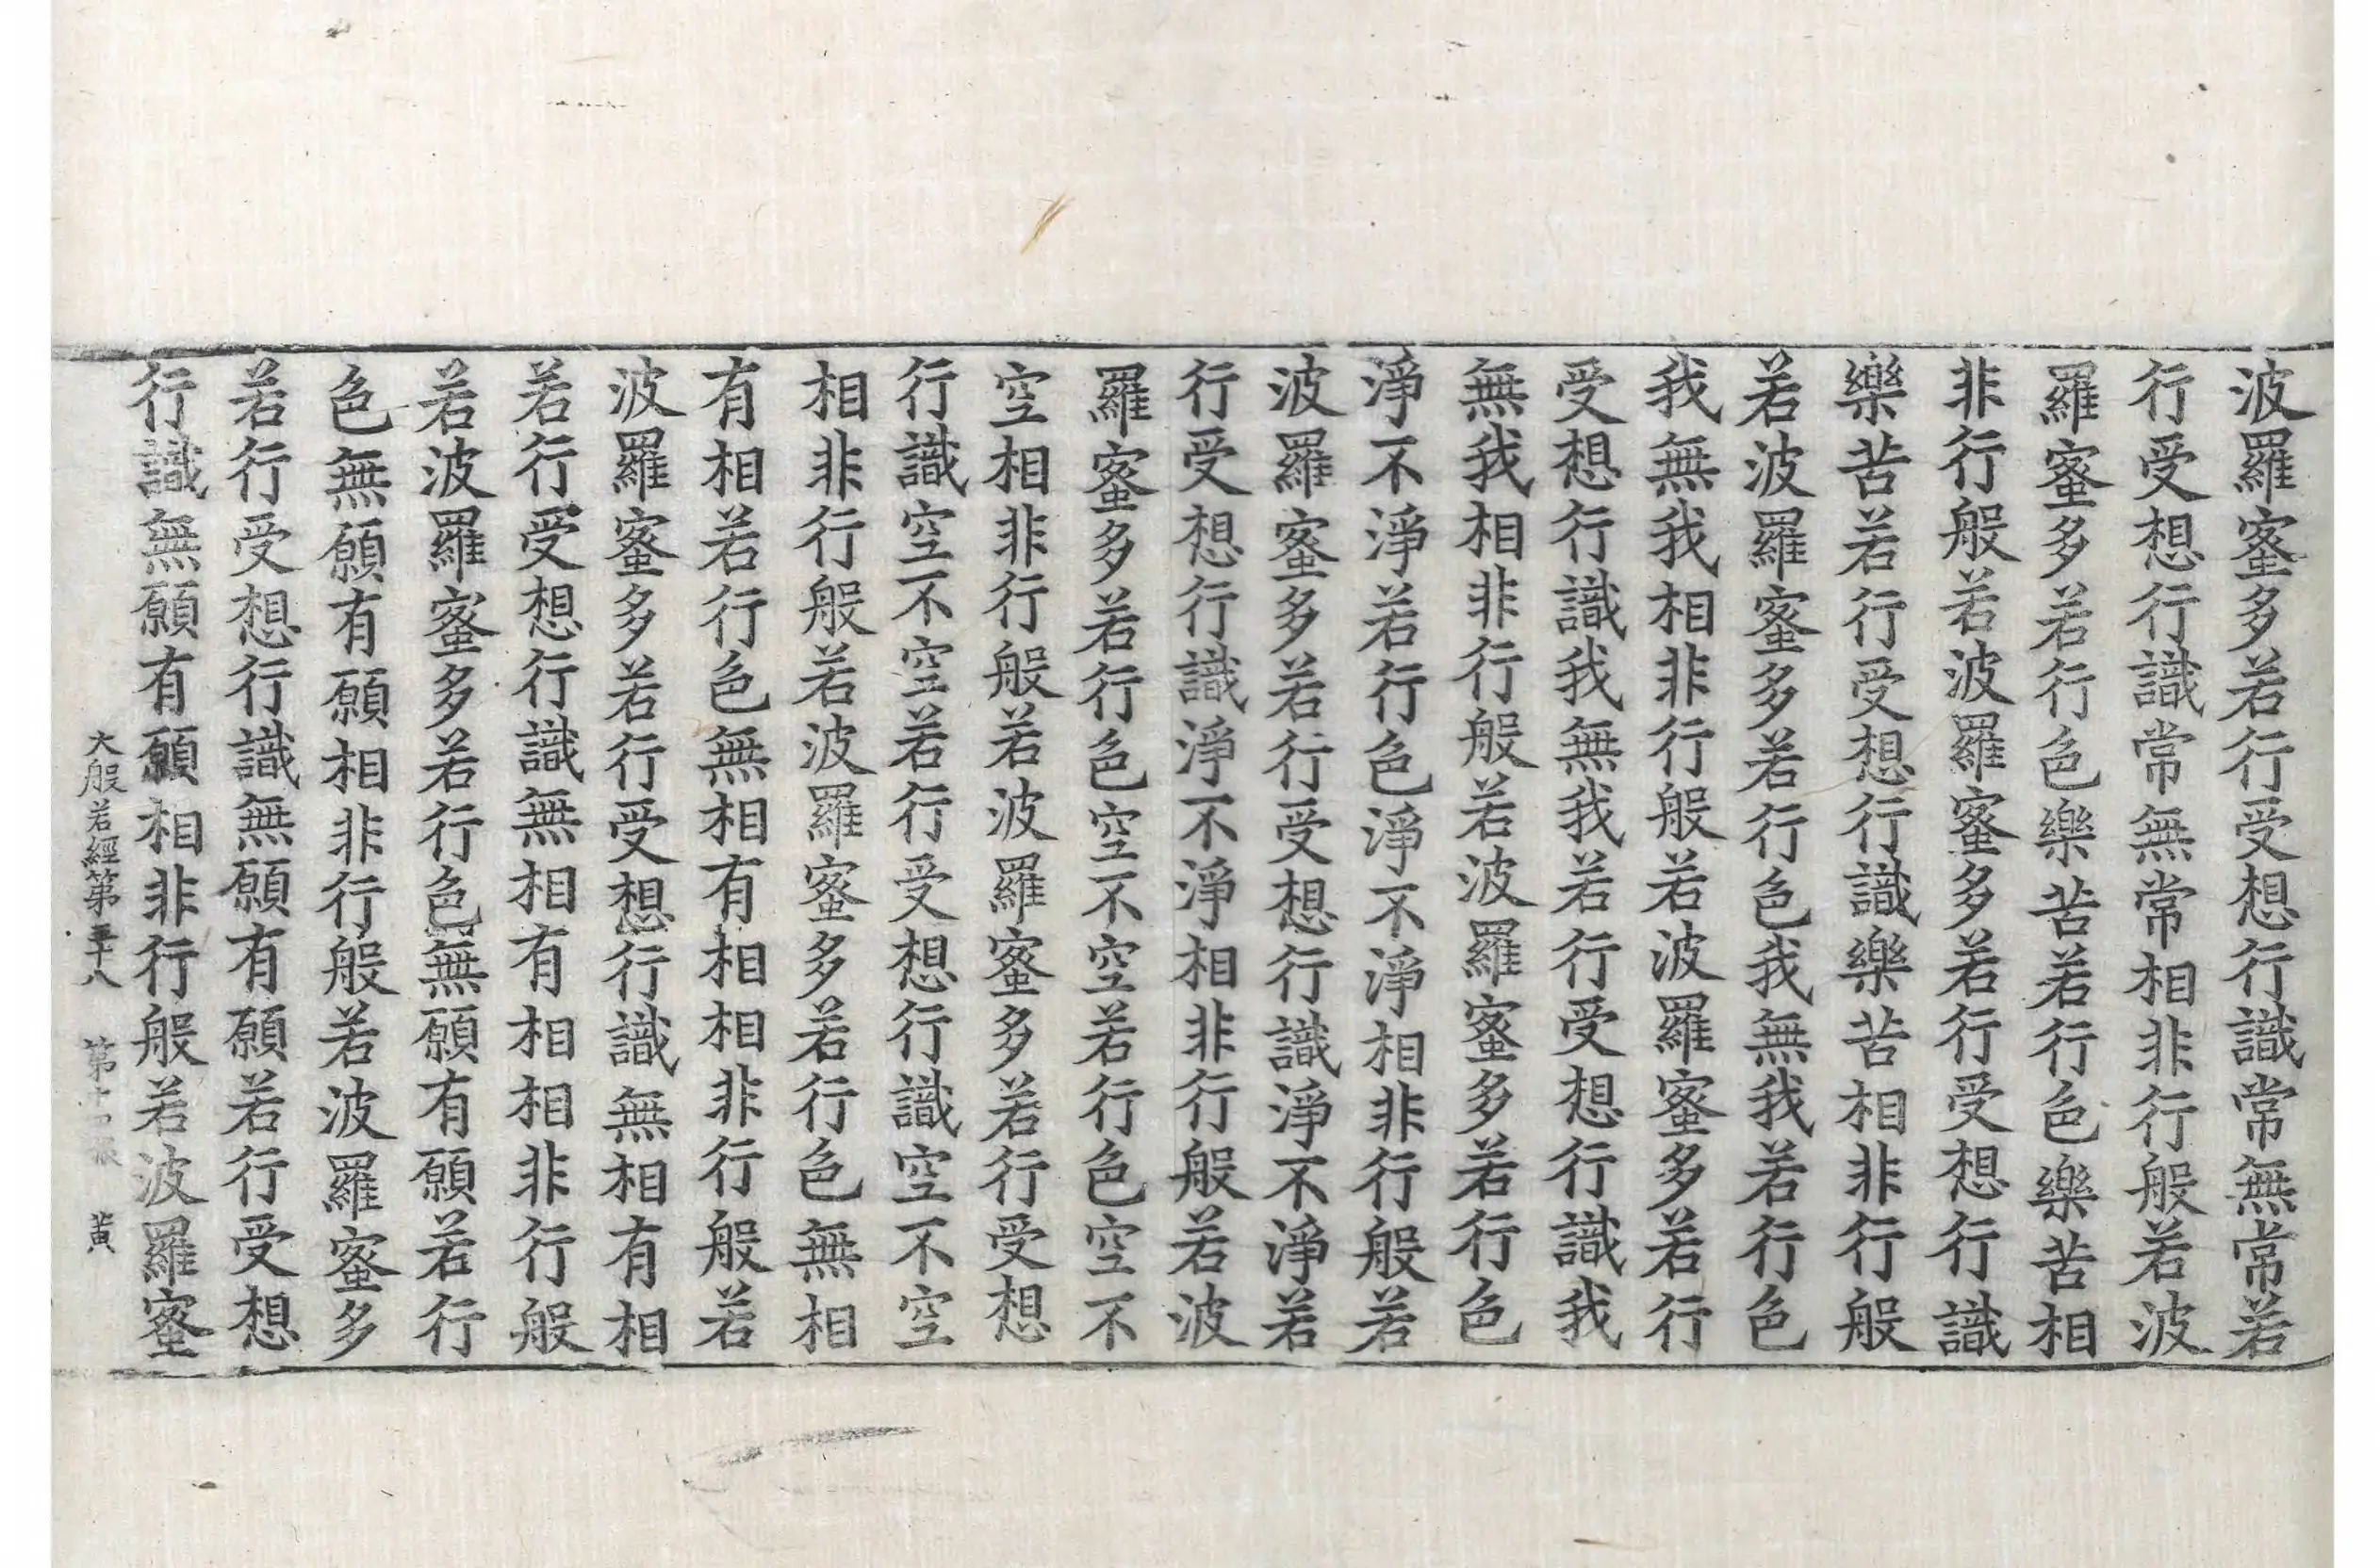 波羅蜜多若行受想行識常無常若
行受想行識常無常相非行般若波
羅蜜多若行色樂苦若行色樂苦相
非行般若波羅蜜多若行受想行識
樂苦若行受想行識樂苦相非行般
若波羅蜜多若行色我無我若行色
我無我相非行般若波羅蜜多若行
受想行識我無我若行受想行識我
無我相非行般若波羅蜜多若行色
淨不淨若行色淨不淨相非行般若
波羅蜜多若行受想行識淨不淨若
行受想行識淨不淨相非行般若波
羅蜜多若行色空不空若行色空不
空相非行般若波羅蜜多若行受想
行識空不空若行受想行識空不空
相非行般若波羅蜜多若行色無相
有相若行色無相有相相非行般若
波羅蜜多若行受想行識無相有相
若行受想行識無相有相相非行般
若波羅蜜多若行色無願有願若行
色無願有願相非行般若波羅蜜多
若行受想行識無願有願若行受想
行識無願有願相非行般若波羅蜜
大般若經第三十八 第十張 黃